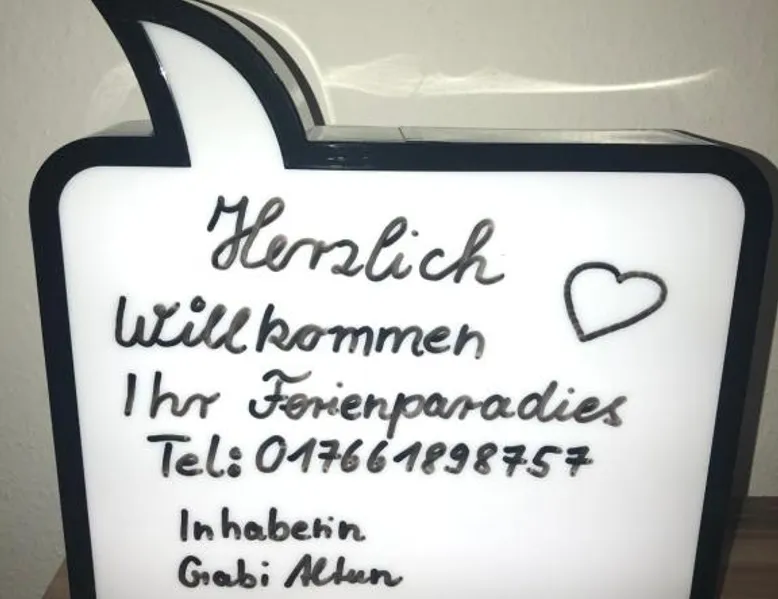 Herzlich
Willkommen
Ihr Ferienparadies
Tel: 017661898757
Inhaberin
Gabi Altun